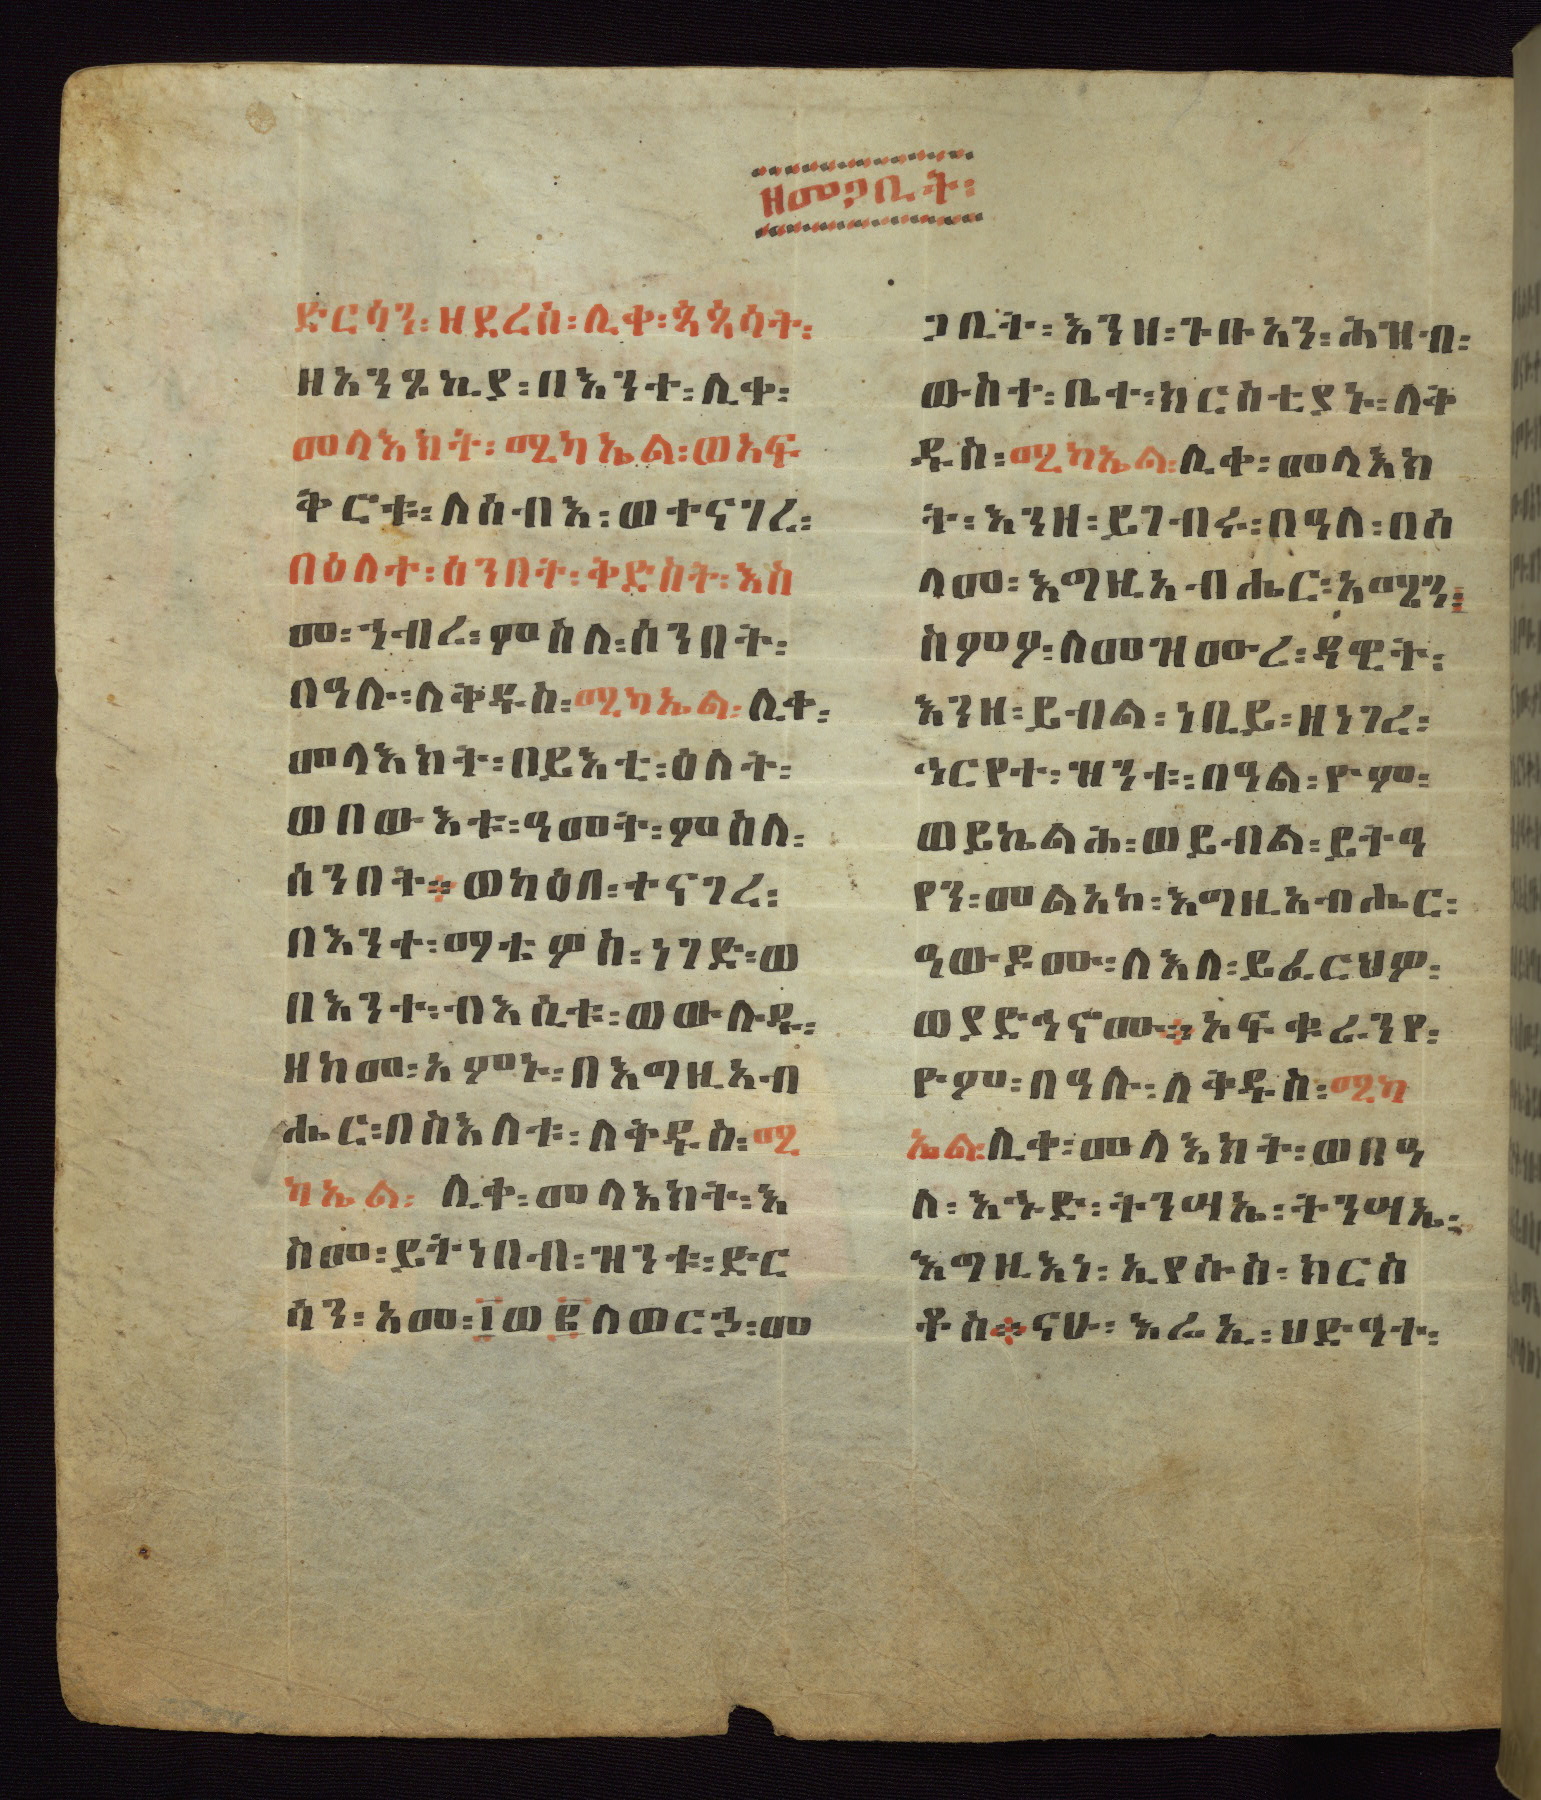 ዘመጋቢት፡
ድርሳን፡ዘደረሰ፡ሊቀ፡ጳጳሳት፡
ዘአንጾኪያ፡በእንተ፡ሊቀ፡
መላእክት፡ሚካኤል፡ወአፍ
ቅሮቱ፡ለሰብእ፡ወተናገረ፡
በዕለተ፡ሰንበት፡ቅድስት፡እስ
መ፡ኀብረ፡ምስለ፡ሰንበት፡
በዓሉ፡ለቅዱስ፡ሚካኤል፡ሊቀ፡
መላእክት፡በይእቲ፡ዕለት፡
ወበውእቱ፡ዓመት፡ምስለ፡
ሰንበት፨ወካዕበ፡ተናገረ፡
በእንተ፡ማቴዎስ፡ነገድ፡ወ
በእንተ፡ብእሲቱ፡ወውሉዱ፡
ዘከመ፡አምኑ፡በእግዚአብ
ሔር፡በስእለቱ፡ለቅዱስ፡ሚ
ካኤል፡ ሊቀ፡መላእክት፡እ
ስመ፡ይትነበብ፡ዝንቱ፡ድር
ሳን፡አመ፡፲ወ፪ለወርኃ፡መ
ጋቢት፡እንዘ፡ጉቡአን፡ሕዝብ፡
ውስተ፡ቤተ፡ክርስቲያኑ፡ለቅ
ዱስ፡ሚካኤል፡ሊቀ፡መላእክ
ት፡እንዘ፡ይገብሩ፡በዓለ፡በሰ
ላመ፡እግዚአብሔር፡አሜን፤
ስምዖ፡ለመዝሙረ፡ዳዊት፡
እንዘ፡ይብል፡ነቢይ፡ዘነገረ፡
ኂርየተ፡ዝንቱ፡በዓል፡ዮም፡
ወይኬልሕ፡ወይብል፡ይትዓ
የን፡መልአከ፡እግዚአብሔር፡
ዓውዶሙ፡ለእለ፡ይፈርህዎ፡
ወያድኅኖሙ፨አፍቁራንየ፡
ዮም፡በዓሉ፡ለቅዱስ፡ሚካ
ኤል፡ሊቀ፡መላእክት፡ወበዓ
ለ፡እኁድ፡ትንሣኤ፡ትንሣኤ፡
እግዚእነ፡ኢየሱስ፡ክርስ
ቶስ፨ናሁ፡እሬኢ፡ህድዓተ፡